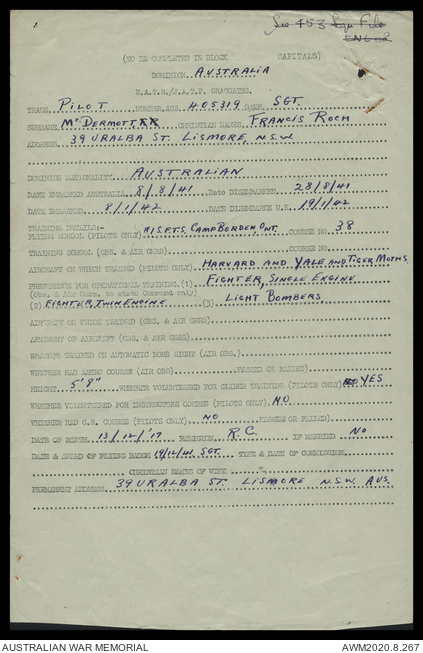 See 453 Sqn File
(TO BE COMPLETED IN BLOCK CAPITALS)
DOMINION AUSTRALIA
E.A.T.S./J.A.T.P. GRADUATES.
TRADE PILOT NUMBER AUS. 405319 RANK SGT.
SURNAME McDERMOTT CHRISTIAN NAMES FRANCIS ROCH
ADDRESS 39 URALBA ST. LISMORE, N.S.W.
DOMINION NATIONALITY AUSTRALIAN
DATE EMBARKED AUSTRALIA 8/8/41 Date DISEMBARKED 28/8/41
DATE EMBARKED 8/1/42 DATE DISEMBARKED U.K. 19/1/42
TRAINING DETAILS:-
FLYING SCHOOL (PILOTS ONLY) S.F.T.S. CAMP BORDEN, ONT. COURSE NO. 38
TRAINING SCHOOL (OBS. & AIR GNRS) COURSE NO.
AIRCRAFT ON WHICH TRAINED (PILOTS ONLY) HARVARD AND YALE AND TIGER MOTHS
PREFERENCE FOR OPERATIONAL TRAINING. (1) FIGHTER, SINGLE ENGINE
(Obs. & Air Gnrs. to state Command only)
(2) FIGHTER, TWIN ENGINE (3) LIGHT BOMBERS
AIRCRAFT ON WHICH TRAINED (OBS. & AIR GNRS)
ARMAMENT OF AIRCRAFT (OBS. & AIR GNRS)
WHETHER TRAINED ON AUTOMATIC BOMB SIGHT (AIR OBS.)
WHETHER HAS ASTRO COURSE (AIR OBS) PASSED OR FAILED
HEIGHT. 5'8" WHETHER VOLUNTEERED FOR GLIDER TRAINING (PILOTS ONLY) YES
WHETHER VOLUNTEERED FOR INSTRUCTORS COURSE (PILOTS ONLY) NO
WHETHER HAD G.R. COURSE (PILOTS ONLY) NO PASSED OR FAILED)
DATE OF BIRTH 13/12/'17 R.C. IF MARRIED NO
DATE & AWARD OF FLYING BADGE 19/12/41 SGT. TYPE & DATE OF COMMISSION
CHRISTIAN NAMES OF WIFE
PERMANENT ADDRESS 39 URALBA ST. LISMORE N.S.W. AUS.
AUSTRALIAN WAR MEMORIAL AWM2020.8.267